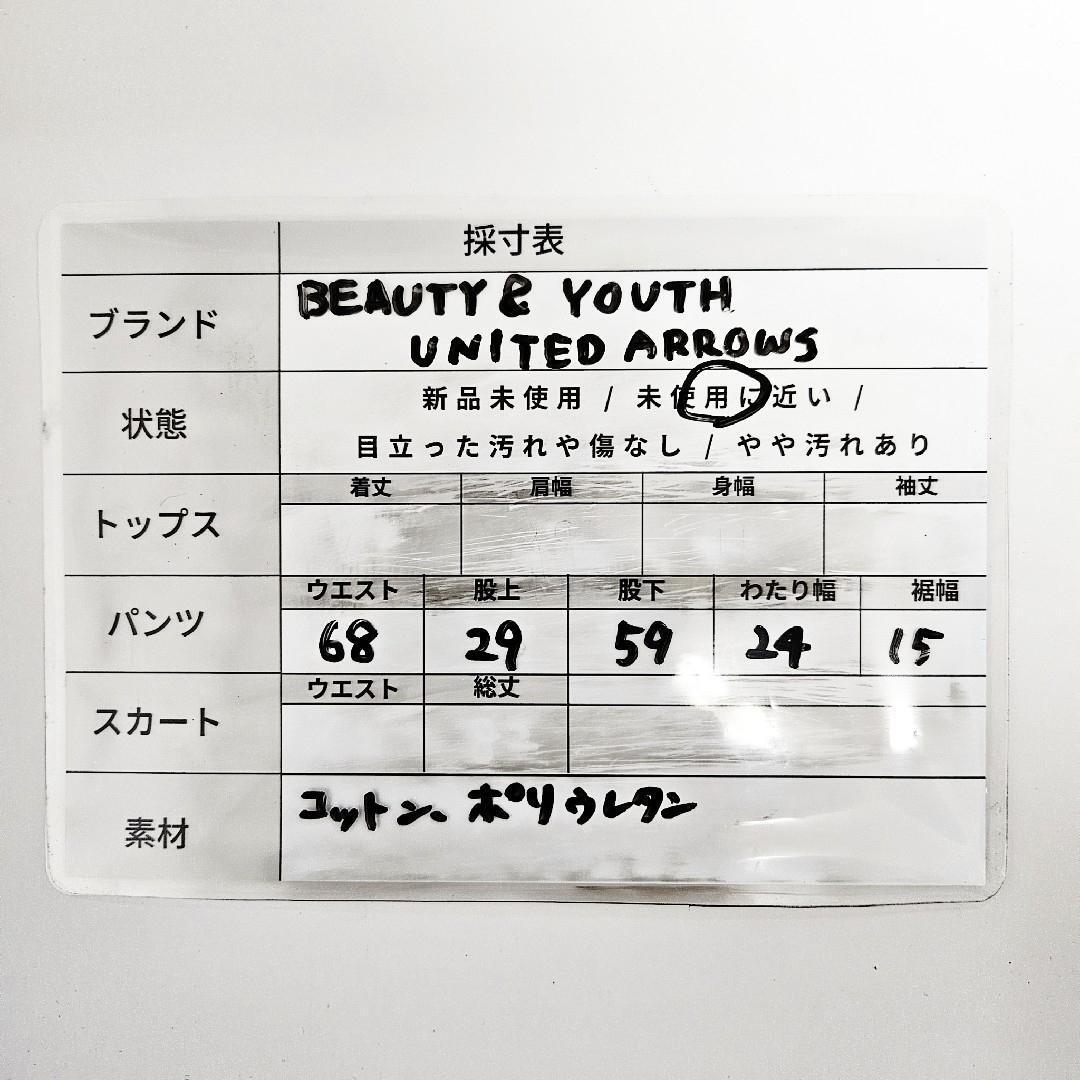 採寸表
ブランド
BEAUTY & YOUTH
UNITED ARROWS
状態
新品未使用 / 未使用に近い /
目立った汚れや傷なし / やや汚れあり
トップス
着丈 肩幅 身幅 袖丈
パンツ
ウエスト 股上 股下 わたり幅 裾幅
68 29 59 24 15
スカート
ウエスト 総丈
素材
コットン、ポリウレタン